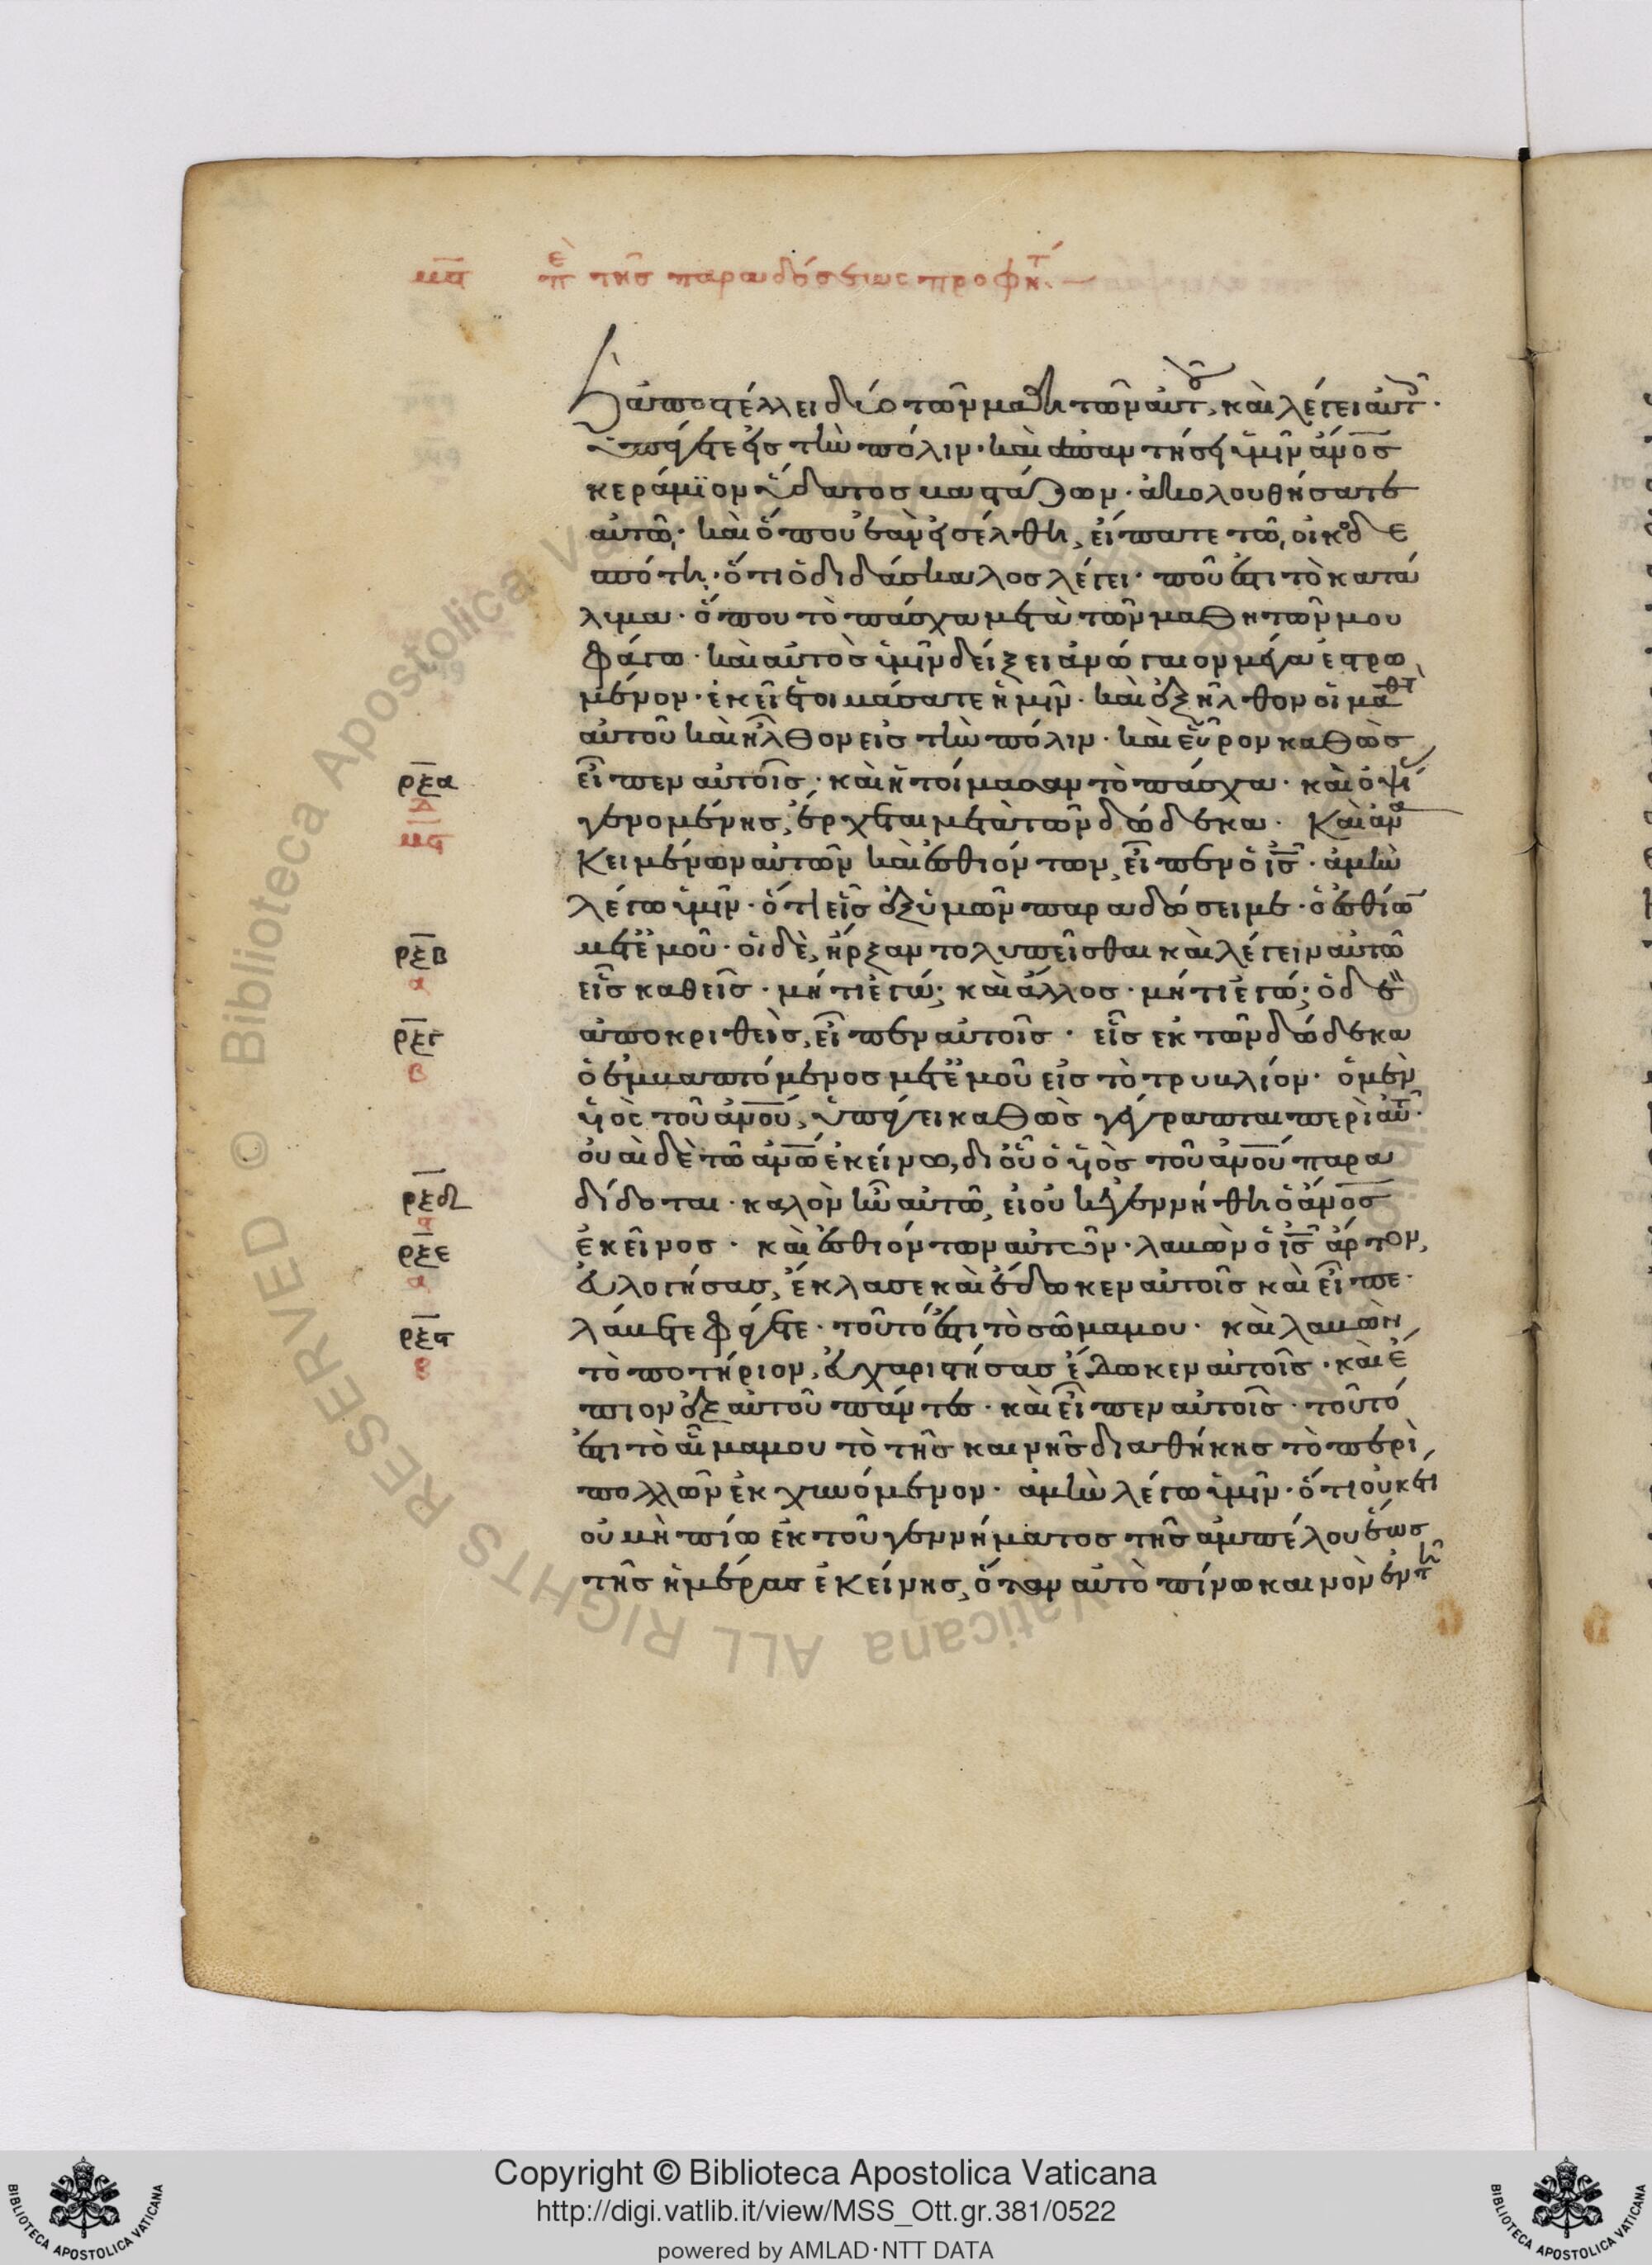 μ̅ϛ̅ πε τῆς παραδόσεως προφητ
ἀποστέλλει δύο τῶν μαθητῶν αὐτοῦ, καὶ λέγει αὐτοῖς·
ὑπάγετε εἰς τὴν πόλιν· καὶ ἀπαντήσει ὑμῖν ἄν̅ο̅ς̅
κεράμϊον ὕδατος βαστάζων· ἀκολουθήσατε
αὐτῶ· καὶ ὅπου ἐὰν εἰσέλθη, εἴπατε τῶ οἰκοδε
σπότη· ὅτι ὁ διδάσκαλος λέγει· ποῦ ἐστι τὸ κατά
λιμα· ὅπου τὸ πάσχα μετὰ τῶν μαθητῶν μου
φάγω· καὶ αὐτὸς ὑμῖν δείξει ἀνώγαιον μέγα ἐστρω
μένον· ἐκεῖ ἑτοιμάσατε ἡμῖν· καὶ ἐξῆλθον οἱ μαθητ
αὐτοῦ καὶ ἦλθον εἰς τὴν πόλιν· καὶ εὗρον καθὼς
ρ̅ξ̅α̅ εἶπεν αὐτοῖς· καὶ ἡτοίμασαν τὸ πάσχα· καὶ ὀψί
γενομένης, ἔρχεται μετὰ τῶν δώδεκα· Καὶ ἀνα
κειμένων αὐτῶν καὶ ἐσθιόντων, εἶπεν ὁ ι̅ς̅· ἀμὴν
λέγω ὑμῖν· ὅτι εἷς ἐξ ὑμῶν παραδώσει με· ὁ ἐσθίων
ρ̅ξ̅β̅ μετ' ἐμοῦ· οἱ δὲ, ἤρξαντο λυπεῖσθαι καὶ λέγειν αὐτῶ
α εἷς καθεῖς· μήτι ἐγώ; καὶ ἄλλος· μήτι ἐγώ; ὁ δὲ
ρ̅ξ̅γ̅ ἀποκριθεὶς, εἶπεν αὐτοῖς· εἷς ἐκ τῶν δώδεκα
β ὁ ἐμβαπτόμενος μετ' ἐμοῦ εἰς τὸ τρυβλίον· ὁ μὲν
υἱὸς τοῦ ἀν̅ο̅υ̅, ὑπάγει καθὼς γέγραπται περὶ αὐτοῦ·
οὐαὶ δὲ τῶ ἀν̅ω̅ ἐκείνω, δι οὗ ὁ υἱὸς τοῦ ἀν̅ο̅υ̅ παρα
ρ̅ξ̅δ̅ δίδοται· καλὸν ἦν αὐτῶ, εἰ οὐκ ἐγεννήθη ὁ ἄν̅ο̅ς̅
ρ̅ξ̅ε̅ ἐκεῖνος· καὶ ἐσθιόντων αὐτῶν· λαβὼν ὁ ι̅ς̅ ἄρτον,
α εὐλογήσας, ἔκλασε καὶ ἔδωκεν αὐτοῖς καὶ εἶπε·
ρ̅ξ̅ϛ̅ λάβετε φάγετε· τοῦτό ἐστι τὸ σῶμα μου· καὶ λαβὼν
β τὸ ποτήριον, εὐχαριστήσας ἔδωκεν αὐτοῖς· καὶ ἔ
πιον ἐξ αὐτοῦ πάντες· καὶ εἶπεν αὐτοῖς· τοῦτό
ἐστι τὸ αἷμα μου τὸ τῆς καινῆς διαθήκης τὸ περὶ
πολλῶν ἐκχυνόμενον· ἀμὴν λέγω ὑμῖν· ὅτι οὐκέτι
οὐ μὴ πίω ἐκ τοῦ γεννήματος τῆς ἀμπέλου ἕως
τῆς ἡμέρας ἐκείνης, ὅταν αὐτὸ πίνω καινὸν ἐν τῆ
© Biblioteca Apostolica Vaticana ALL RIGHTS RESERVED
Copyright © Biblioteca Apostolica Vaticana
http://digi.vatlib.it/view/MSS_Ott.gr.381/0522
powered by AMLAD·NTT DATA
BIBLIOTECA APOSTOLICA VATICANA
BIBLIOTECA APOSTOLICA VATICANA